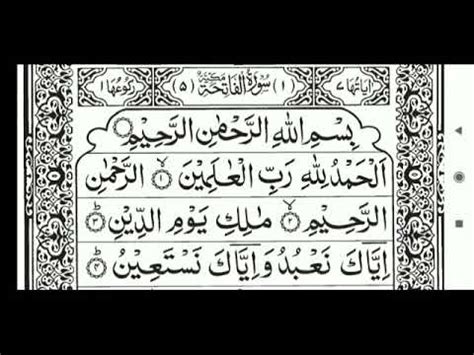 اٰیَاتُهَا ٧ (١) سُوْرَةُ الْفَاتِحَةِ مَكِّيَّةٌ (٥) رُكُوْعُهَا ١
بِسْمِ اللّٰهِ الرَّحْمٰنِ الرَّحِيْمِ
اَلْحَمْدُ لِلّٰهِ رَبِّ الْعٰلَمِيْنَ ۙ﴿١﴾ الرَّحْمٰنِ
الرَّحِيْمِ ۙ﴿٢﴾ مٰلِكِ يَوْمِ الدِّيْنِ ؕ﴿٣﴾
اِيَّاكَ نَعْبُدُ وَاِيَّاكَ نَسْتَعِيْنُ ؕ﴿٤﴾